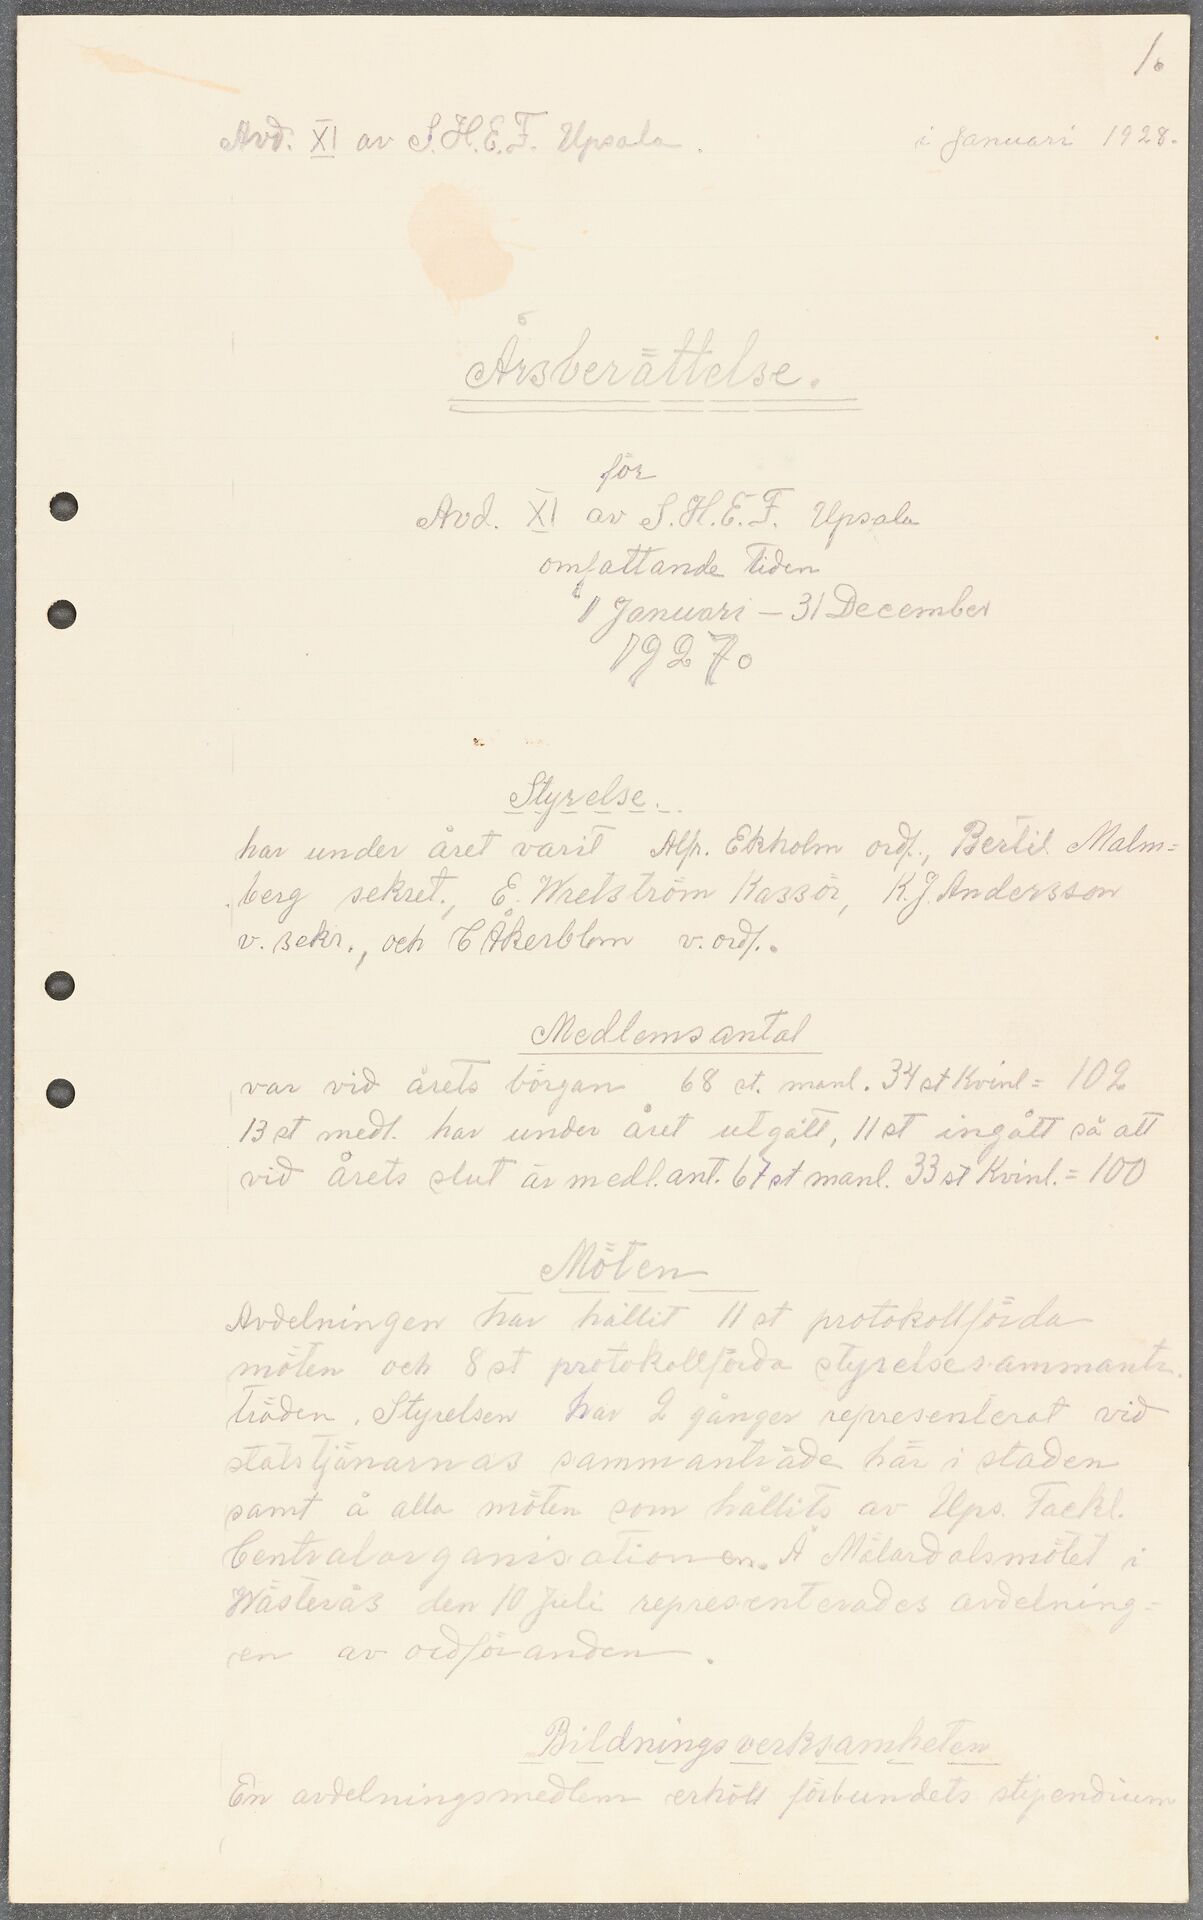 1.
Avd. XI av S.H.E.F. Upsala. i Januari 1928.
Årsberättelse.
för
Avd. XI av S.H.E.F. Upsala
omfattande tiden
1 Januari – 31 December
1927.
Styrelse.
har under året varit Alfr. Ekholm ordf., Bertil Malm=
berg sekret., E. Wretström Kassör, K.J. Andersson
v. sekr., och C Åkerblom v. ordf.
Medlemsantal
var vid årets börgan 68 st. manl. 34 st Kvinl = 102
13 st medl. har under året utgått, 11 st ingått så att
vid årets slut är medl. ant. 67 st manl. 33 st Kvinl. = 100
Möten
Avdelningen har hållit 11 st protokollförda
möten och 8 st protokollförda styrelsesammantr
träden. Styrelsen har 2 gånger representerat vid
statstjänarnas sammanträde här i staden
samt å alla möten som hållits av Ups. Fackl.
Centralorganisationen. Å Mälardalsmötet i
Wästerås den 10 Juli representerades avdelning=
en av ordföranden.
Bildningsverksamheten
En avdelningsmedlem erhöll förbundets stipendium